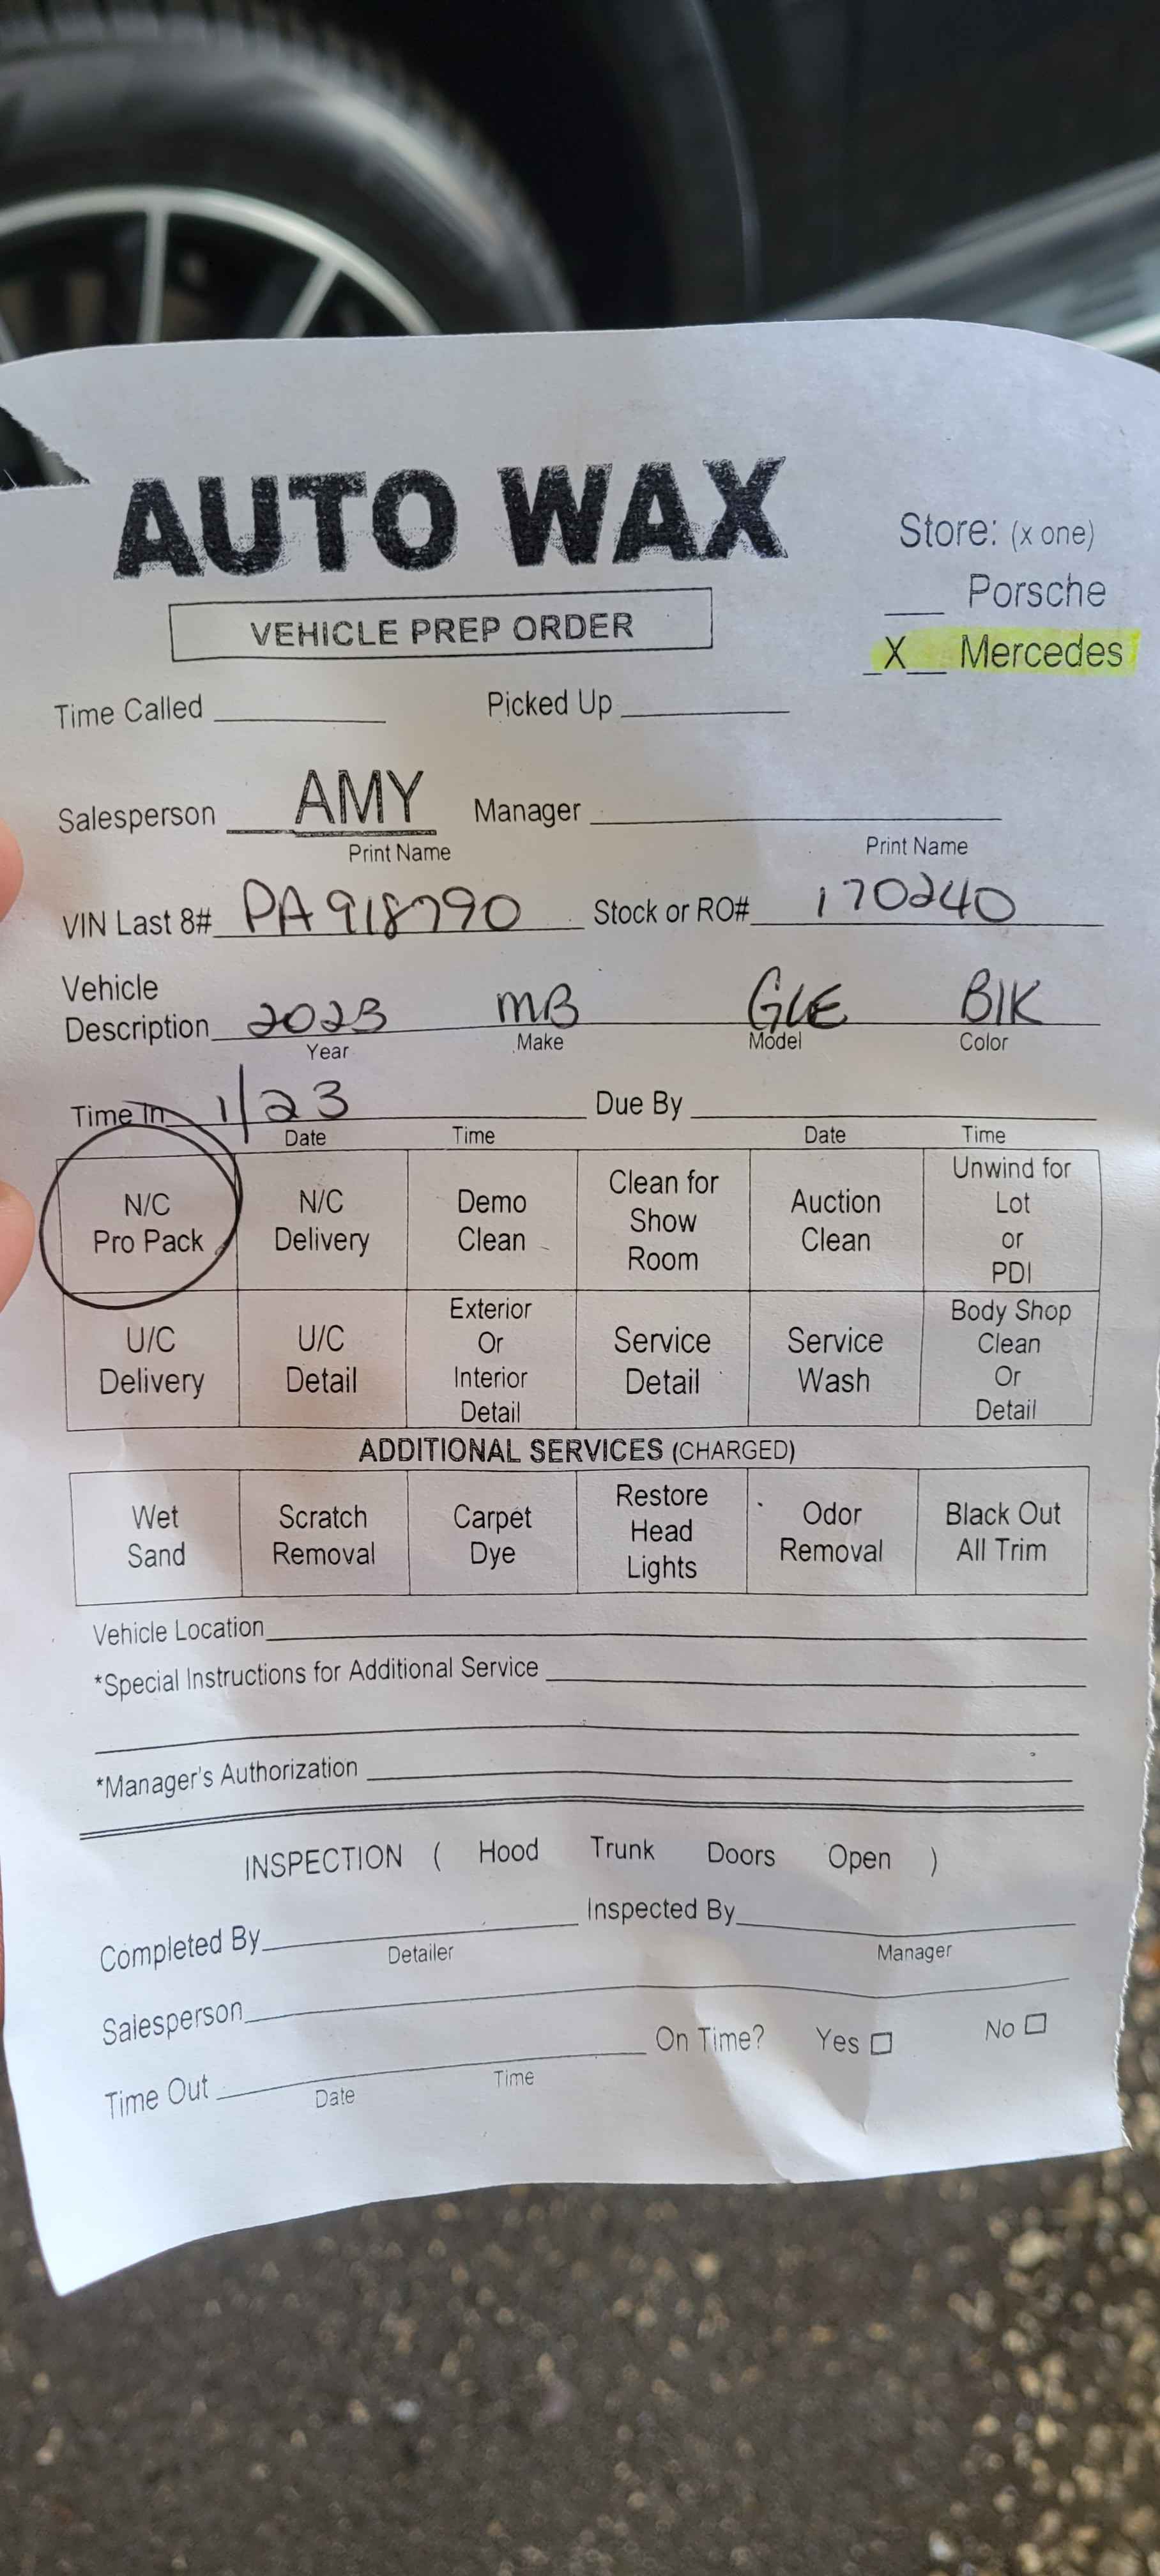 AUTO WAX
Store: (x one)
___ Porsche
_X__ Mercedes
VEHICLE PREP ORDER
Time Called ________ Picked Up ________
Salesperson AMY Manager ________
Print Name Print Name
VIN Last 8# PA918790 Stock or RO# 170240
Vehicle
Description 2023 MB GLE BlK
Year Make Model Color
Time In 1/23 Due By ________
Date Time Date Time
N/C Pro Pack N/C Delivery Demo Clean Clean for Show Room Auction Clean Unwind for Lot or PDI
U/C Delivery U/C Detail Exterior Or Interior Detail Service Detail Service Wash Body Shop Clean Or Detail
ADDITIONAL SERVICES (CHARGED)
Wet Sand Scratch Removal Carpet Dye Restore Head Lights Odor Removal Black Out All Trim
Vehicle Location ________
*Special Instructions for Additional Service ________
*Manager's Authorization ________
INSPECTION ( Hood Trunk Doors Open )
Completed By ________ Inspected By ________
Detailer Manager
Salesperson ________
On Time? Yes □ No □
Time Out ________
Date Time